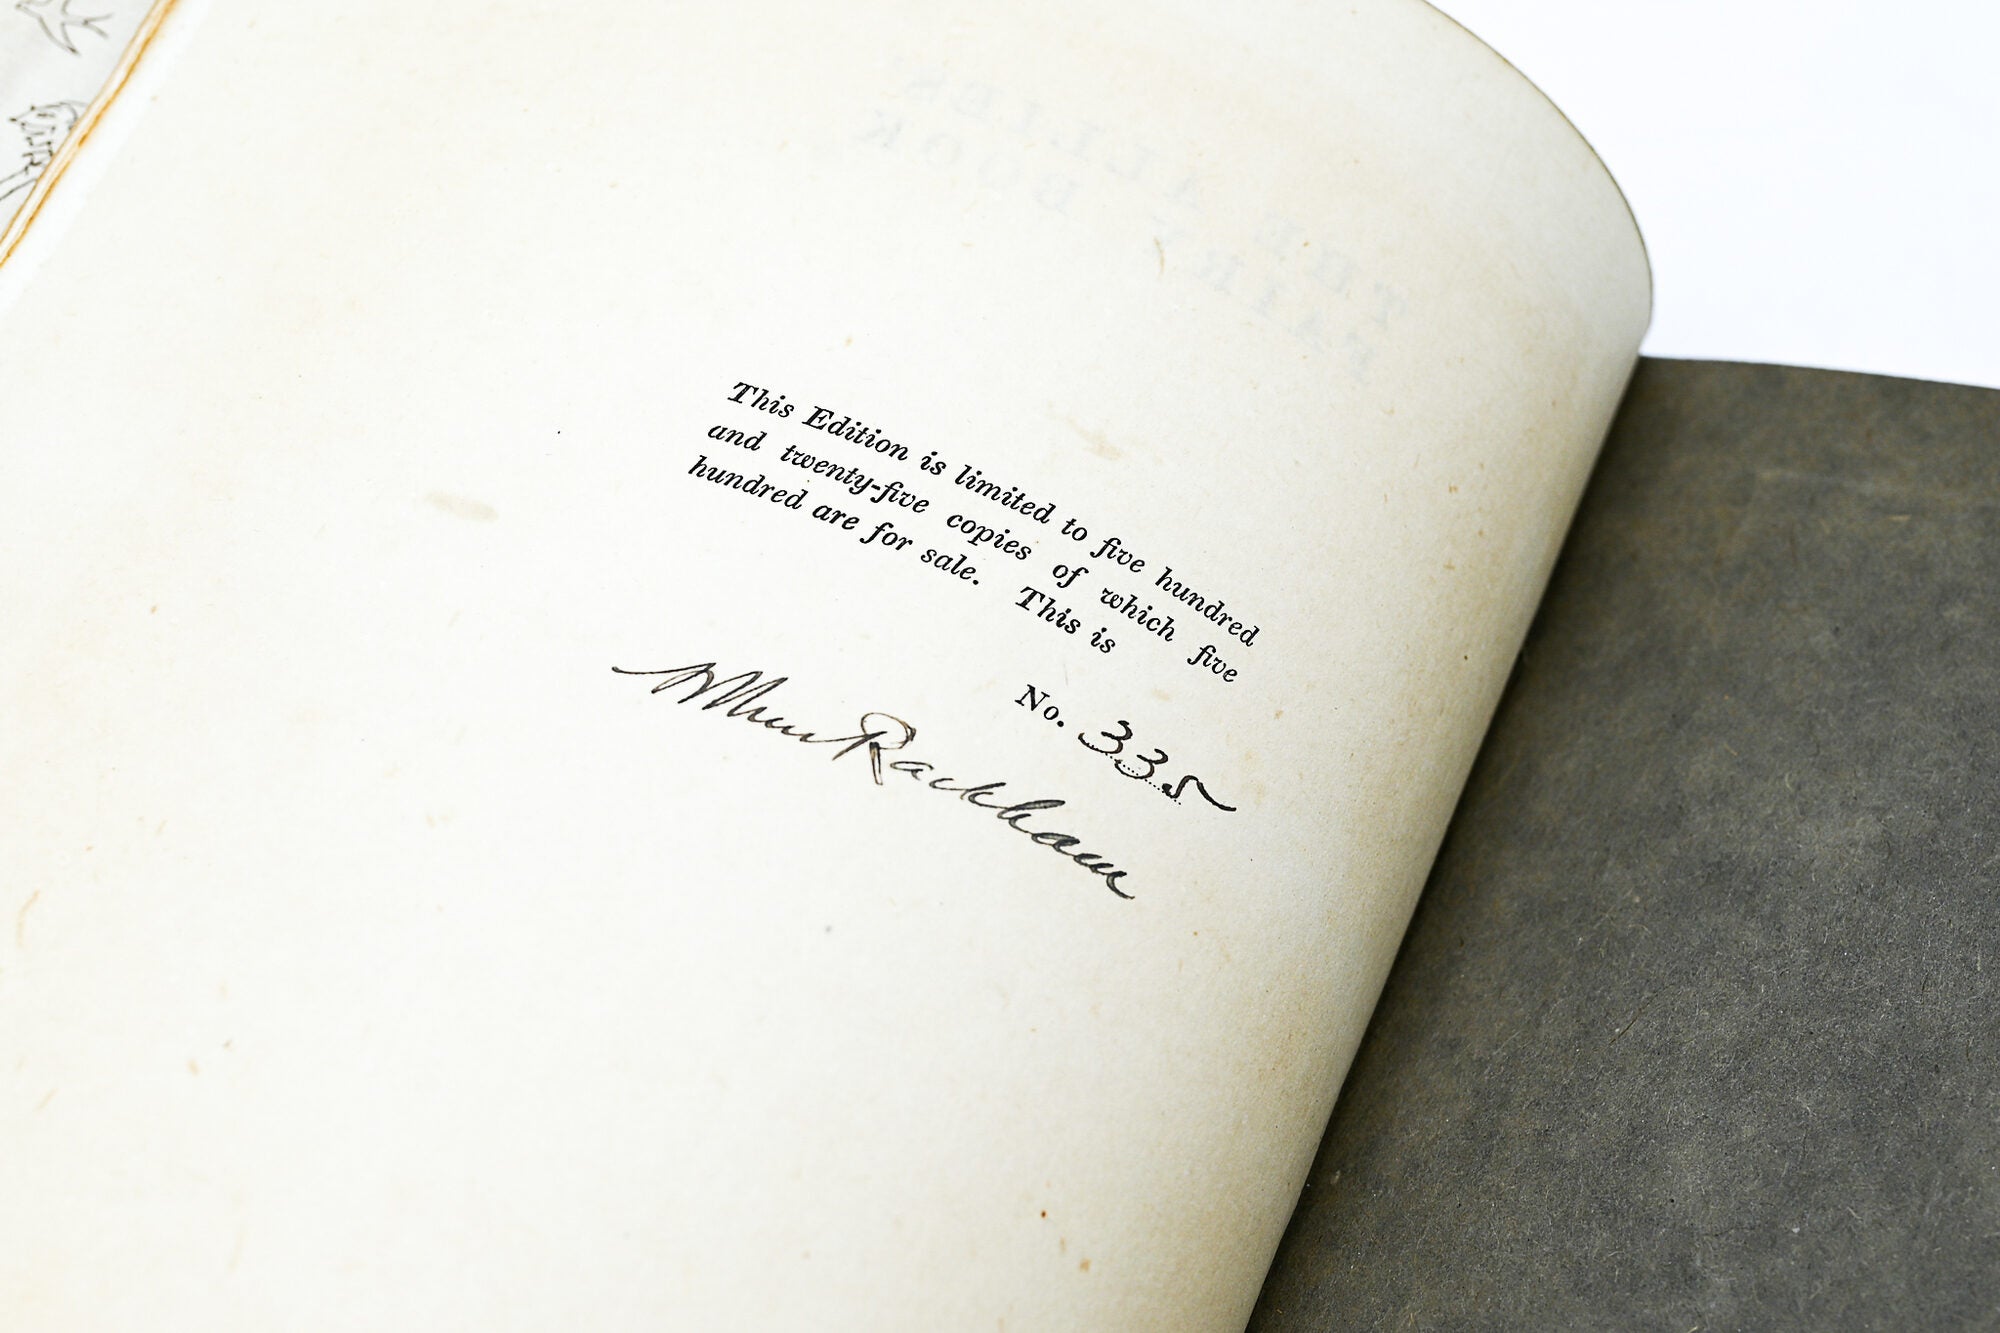 THE ALLIES'
FAIRY BOOK
This Edition is limited to five hundred
and twenty-five copies of which five
hundred are for sale. This is
No. 335
Arthur Rackham